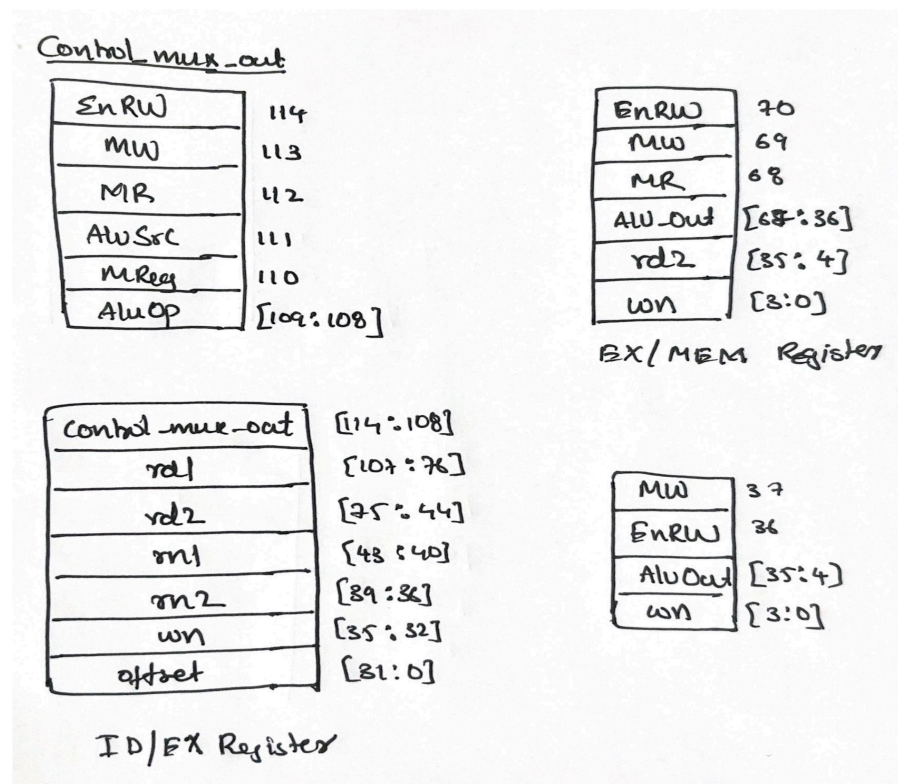 Control_mux_out
EnRW 114
MW 113
MR 112
AluSrC 111
MReg 110
AluOp [109:108]
EnRW 70
MW 69
MR 68
ALU_Out [67:36]
rd2 [35:4]
wn [3:0]
EX/MEM Register
control_mux_out [114:108]
rd1 [107:76]
rd2 [75:44]
rn1 [43:40]
rn2 [39:36]
wn [35:32]
offset [31:0]
ID/EX Register
MW 37
EnRW 36
AluOut [35:4]
wn [3:0]